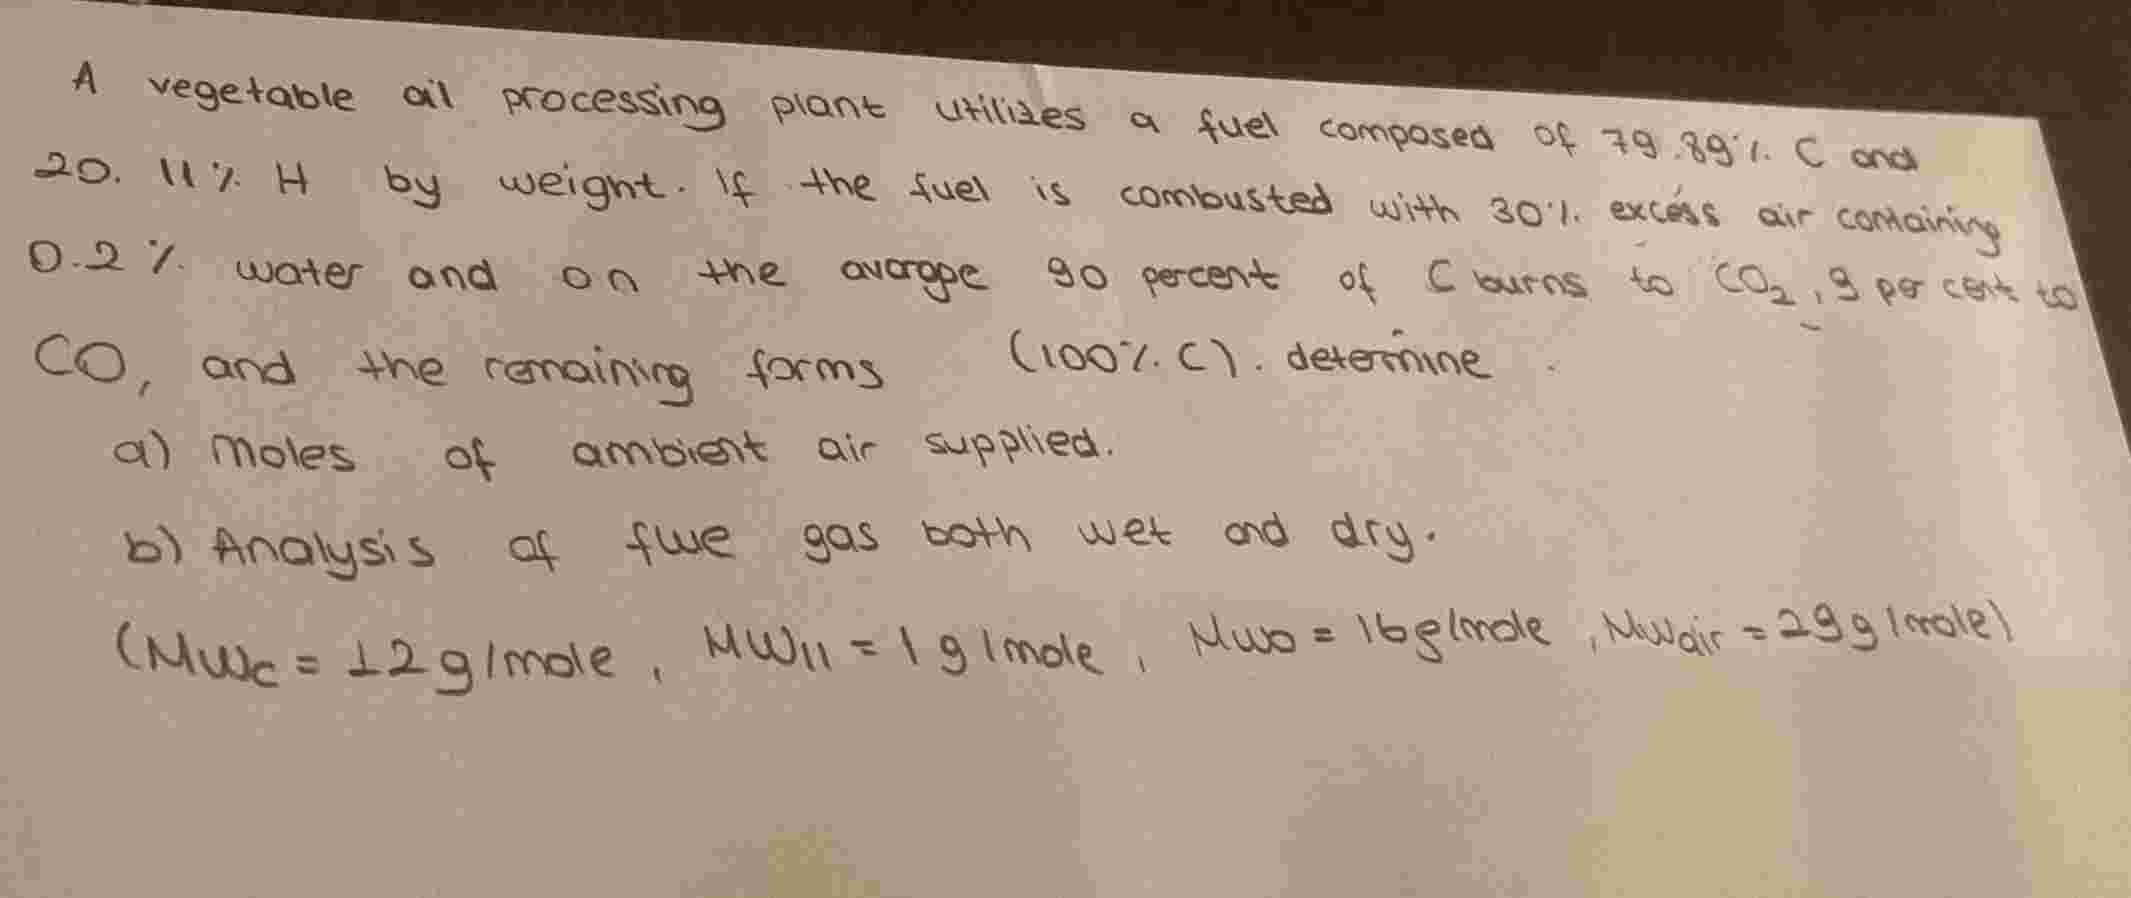 A vegetable oil processing plant utilizes a fuel composed of 79.89% C and
20.11% H by weight. If the fuel is combusted with 30% excess air containing
0.2% water and on the avarage 90 percent of C burns to CO2, 9 per cent to
CO, and the remaining forms (100% C). determine
a) Moles of ambient air supplied.
b) Analysis of flue gas both wet and dry.
(MWC = 12 g/mole, MWH = 1 g/mole, MWO = 16g/mole, MWair = 29g/mole)